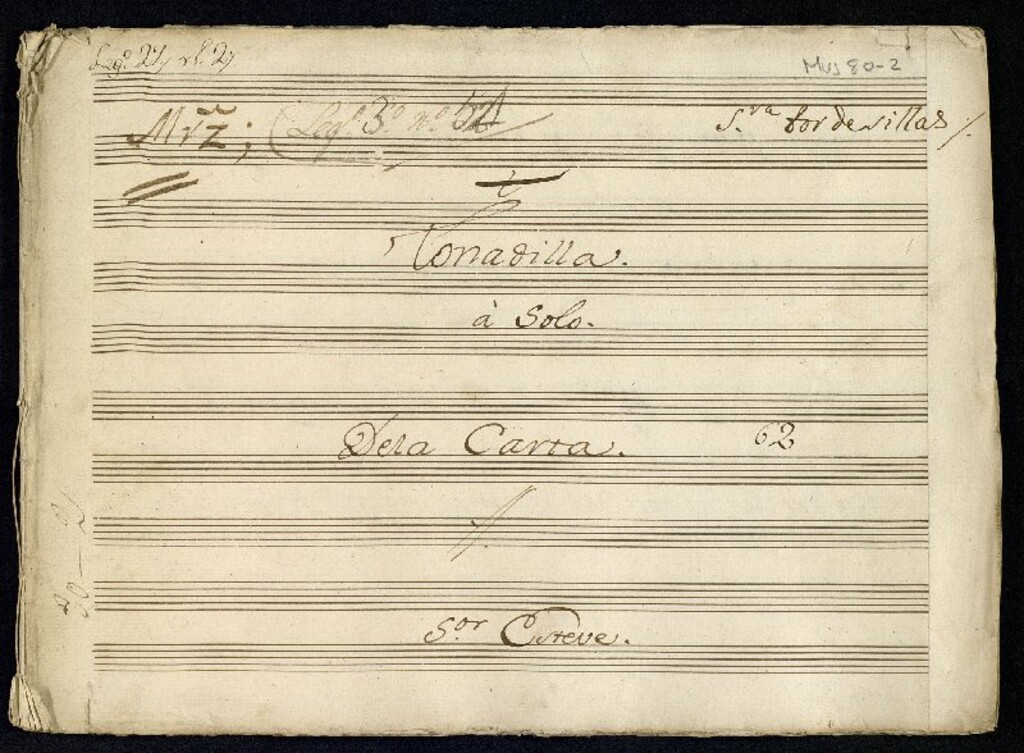 Leg.º 27, nº. 2,
Mus 80-2
Mrz; (Leg.º 3.º nº 52
S.ra tordesillas
Tonadilla.
à Solo.
Dela Carta. 62
S.or Esteve.